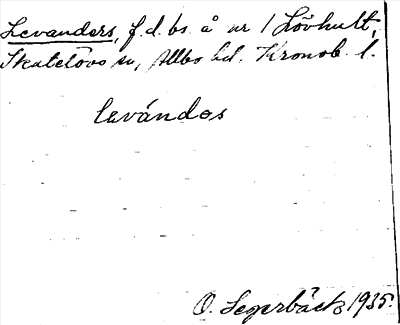 Levanders, f.d. bs. å nr 1 Lövhult,
Skatelövs sn, Allbo hd. Kronob. l.
levándɐs
O. Segerbäck 1935.